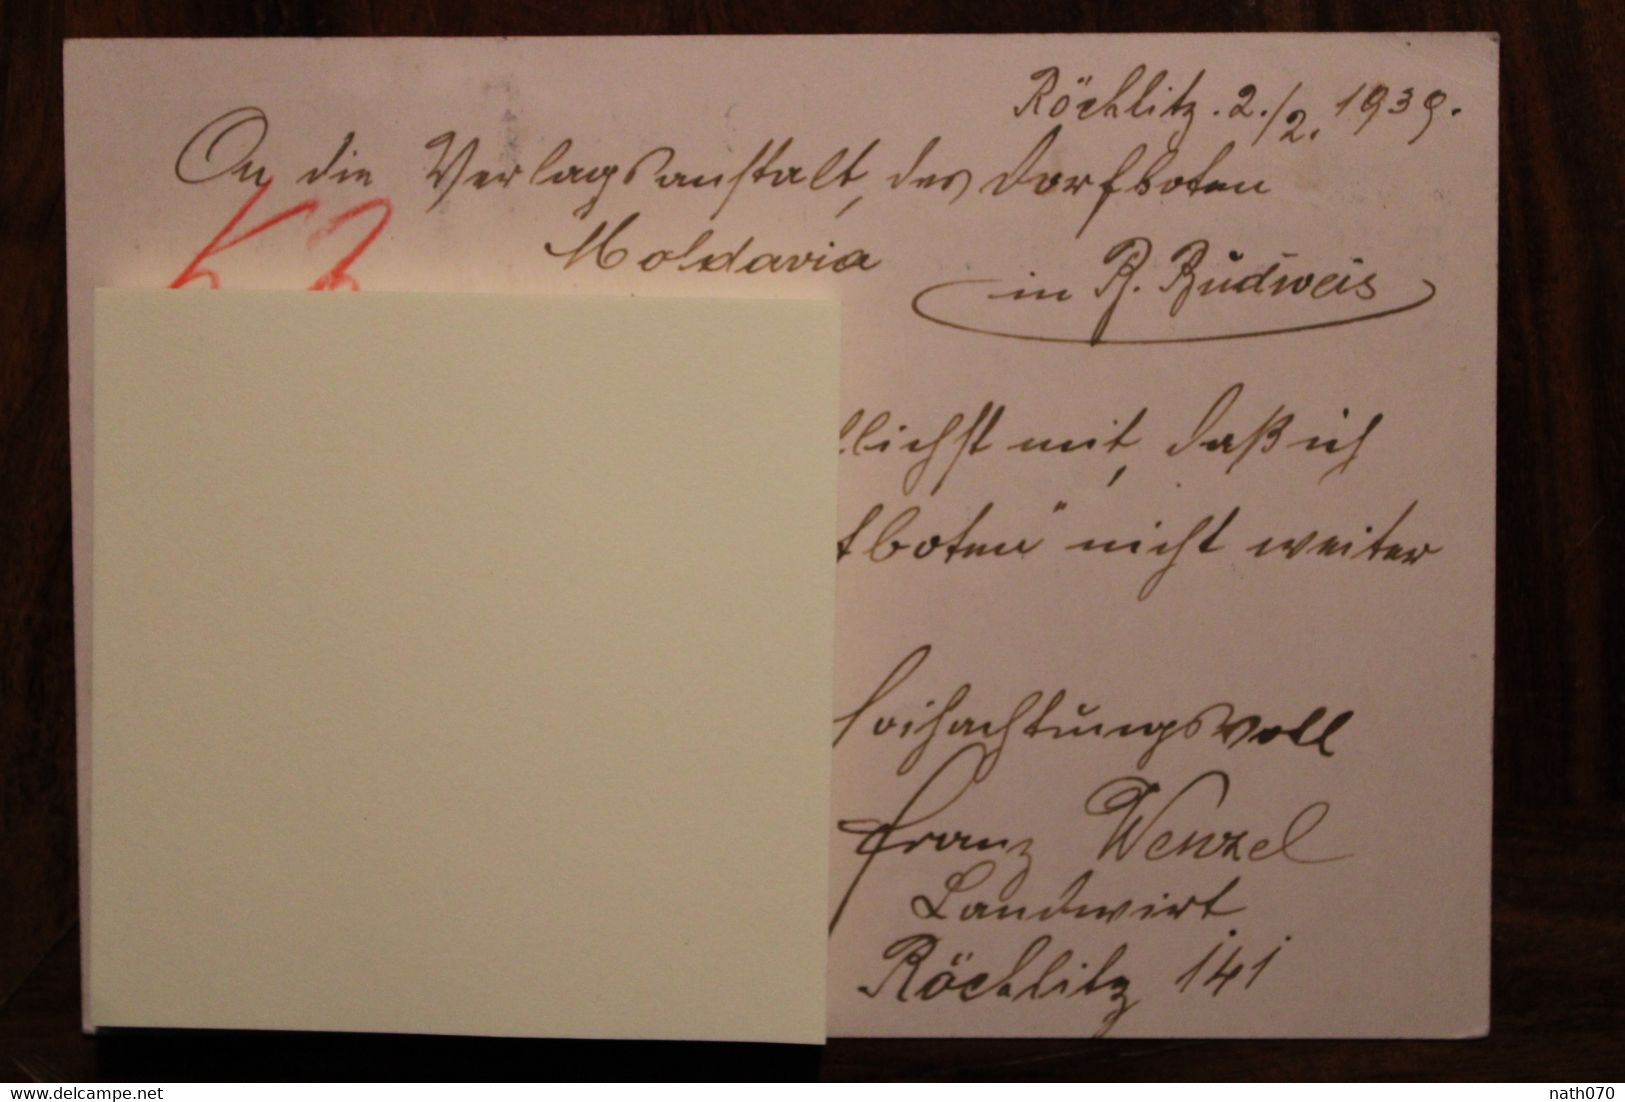 Röchlitz. 2./2. 1939.
An die Verlagsanstalt, des Dorfboten
Moldavia
in B. Budweis
llichst mit, daß ich
fboten" nicht weiter
Hochachtungsvoll
Franz Wenzel
Landwirt
Röchlitz 141
delcampe.net
nath070